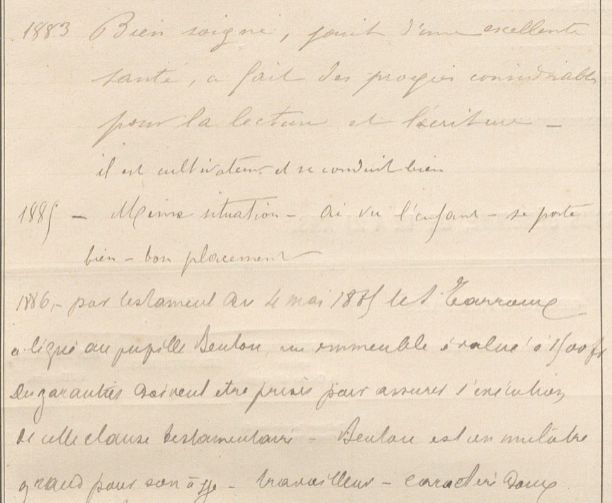 1883 Bien soigné, jouit d'une excellente
santé, a fait des progrès considérables
pour la lecture et l'écriture –
il est cultivateur et se conduit bien
1885 – Même situation – ai vu l'enfant – se porte
bien – bon placement
1886 – par testament du 4 mai 1885 le S. Tarroux
a légué au pupille Benton, un immeuble évalué à 1500 fr
Des garanties doivent etre prises pour assurer l'exécution
de cette clause testamentaire – Benton est un mulâtre
grand pour son âge – travailleur – caractère doux